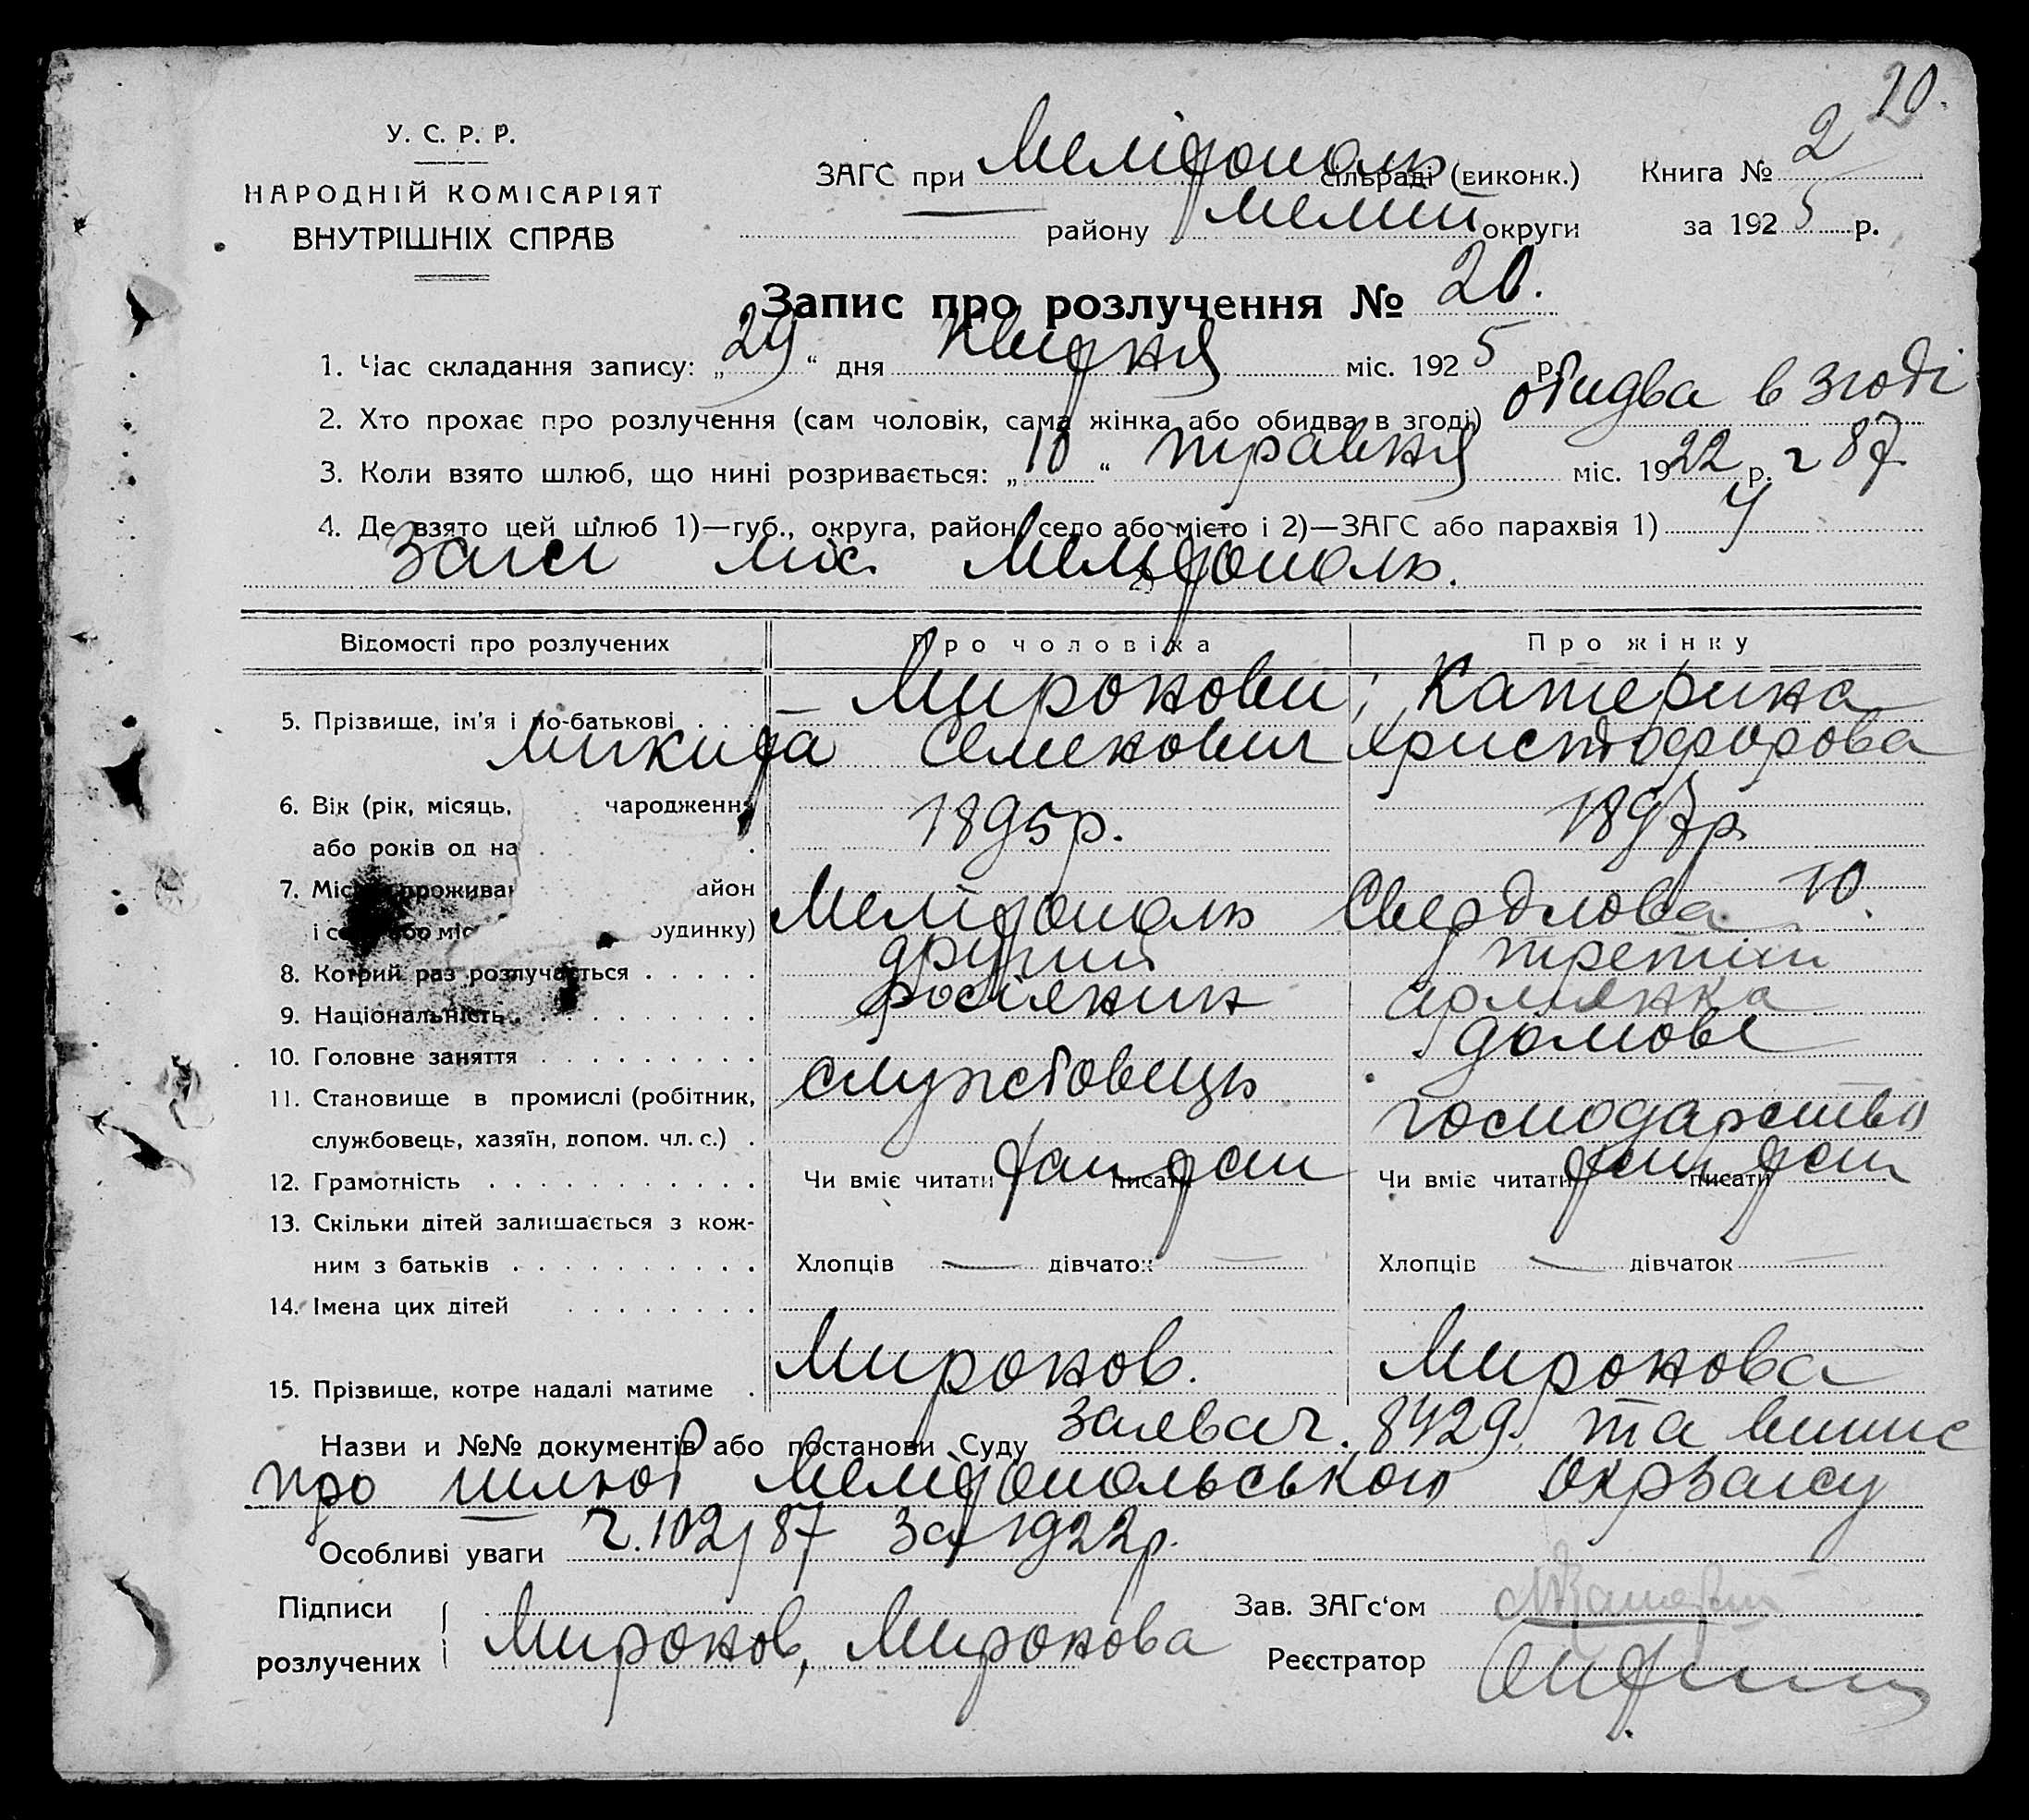 20.
У. С. Р. Р.
НАРОДНІЙ КОМІСАРІЯТ
ВНУТРІШНІХ СПРАВ
ЗАГС при Мелітополь сільраді (виконк.) Книга № 2
— району Мелит округи за 1925 р.
Запис про розлучення № 20.
1. Час складання запису: „29“ дня Квитня міс. 1925 р.
2. Хто прохає про розлучення (сам чоловік, сама жінка або обидва в згоді) обидва в згоді
3. Коли взято шлюб, що нині розривається: „10“ травня міс. 1922 р. ч 87
4. Де взято цей шлюб 1)—губ., округа, район, село або місто і 2)—ЗАГС або парахвія 1) У
Загсі міс. Мелітополь.
Відомості про розлучених Про чоловіка Про жінку
5. Прізвище, ім'я і по-батькові . . . — Миронови; Катерина
Микита Семенович Христофорова
6. Вік (рік, місяць, народження 1895р. 1897р.
або років од на
7. Місце проживан район Мелітополь Свердлова 10.
і село або міс будинку)
8. Котрий раз розлучається . . . . . другий третій
9. Національність . . . . . . . . . . росіянин армянка
10. Головне заняття . . . . . . . . . домове
11. Становище в промислі (робітник, службовець
службовець, хазяїн, допом. чл. с.) . господарство
12. Грамотність . . . . . . . . . . . Чи вміє читати так писати так Чи вміє читати так писати так
13. Скільки дітей залишається з кож-
ним з батьків . . . . . . . . . . Хлопців — дівчаток — Хлопців — дівчаток —
14. Імена цих дітей . . . . . . . .
15. Прізвище, котре надалі матиме . Миронов. Миронова
Назви и №№ документів або постанови Суду заява ч. 8429 та випис
про шлюб Мелітопольського Окрзагсу
Особливі уваги ч. 102/87 за 1922р.
Підписи Зав. ЗАГс‘ом
розлучених Миронов, Миронова Реєстратор